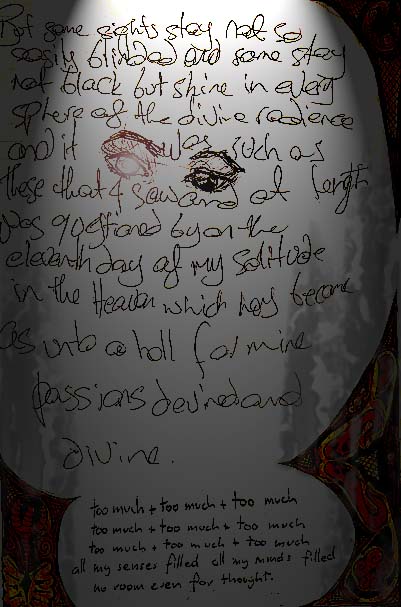 But some sights stay not so
easily blinded and some stay
not black but shine in every
sphere of the divine radience
and it was such as
these that I saw and at length
was questioned by on the
eleventh day of my solitude
in the Heaven which has become
as unto a hell for mine
passions desired and
divine.
too much + too much + too much
too much + too much + too much
too much + too much + too much
all my senses filled all my minds filled
no room even for thought.